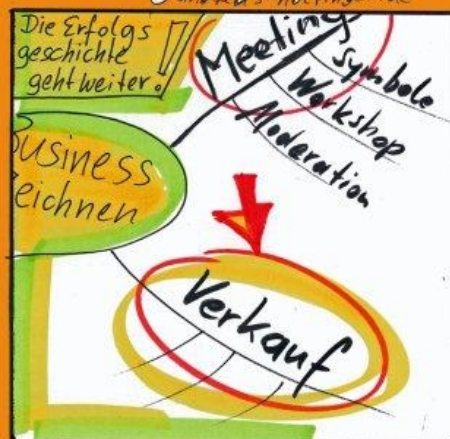 Die Erfolgs
geschichte
geht weiter!
Meeting
Symbole
Workshop
Moderation
Business
Zeichnen
Verkauf